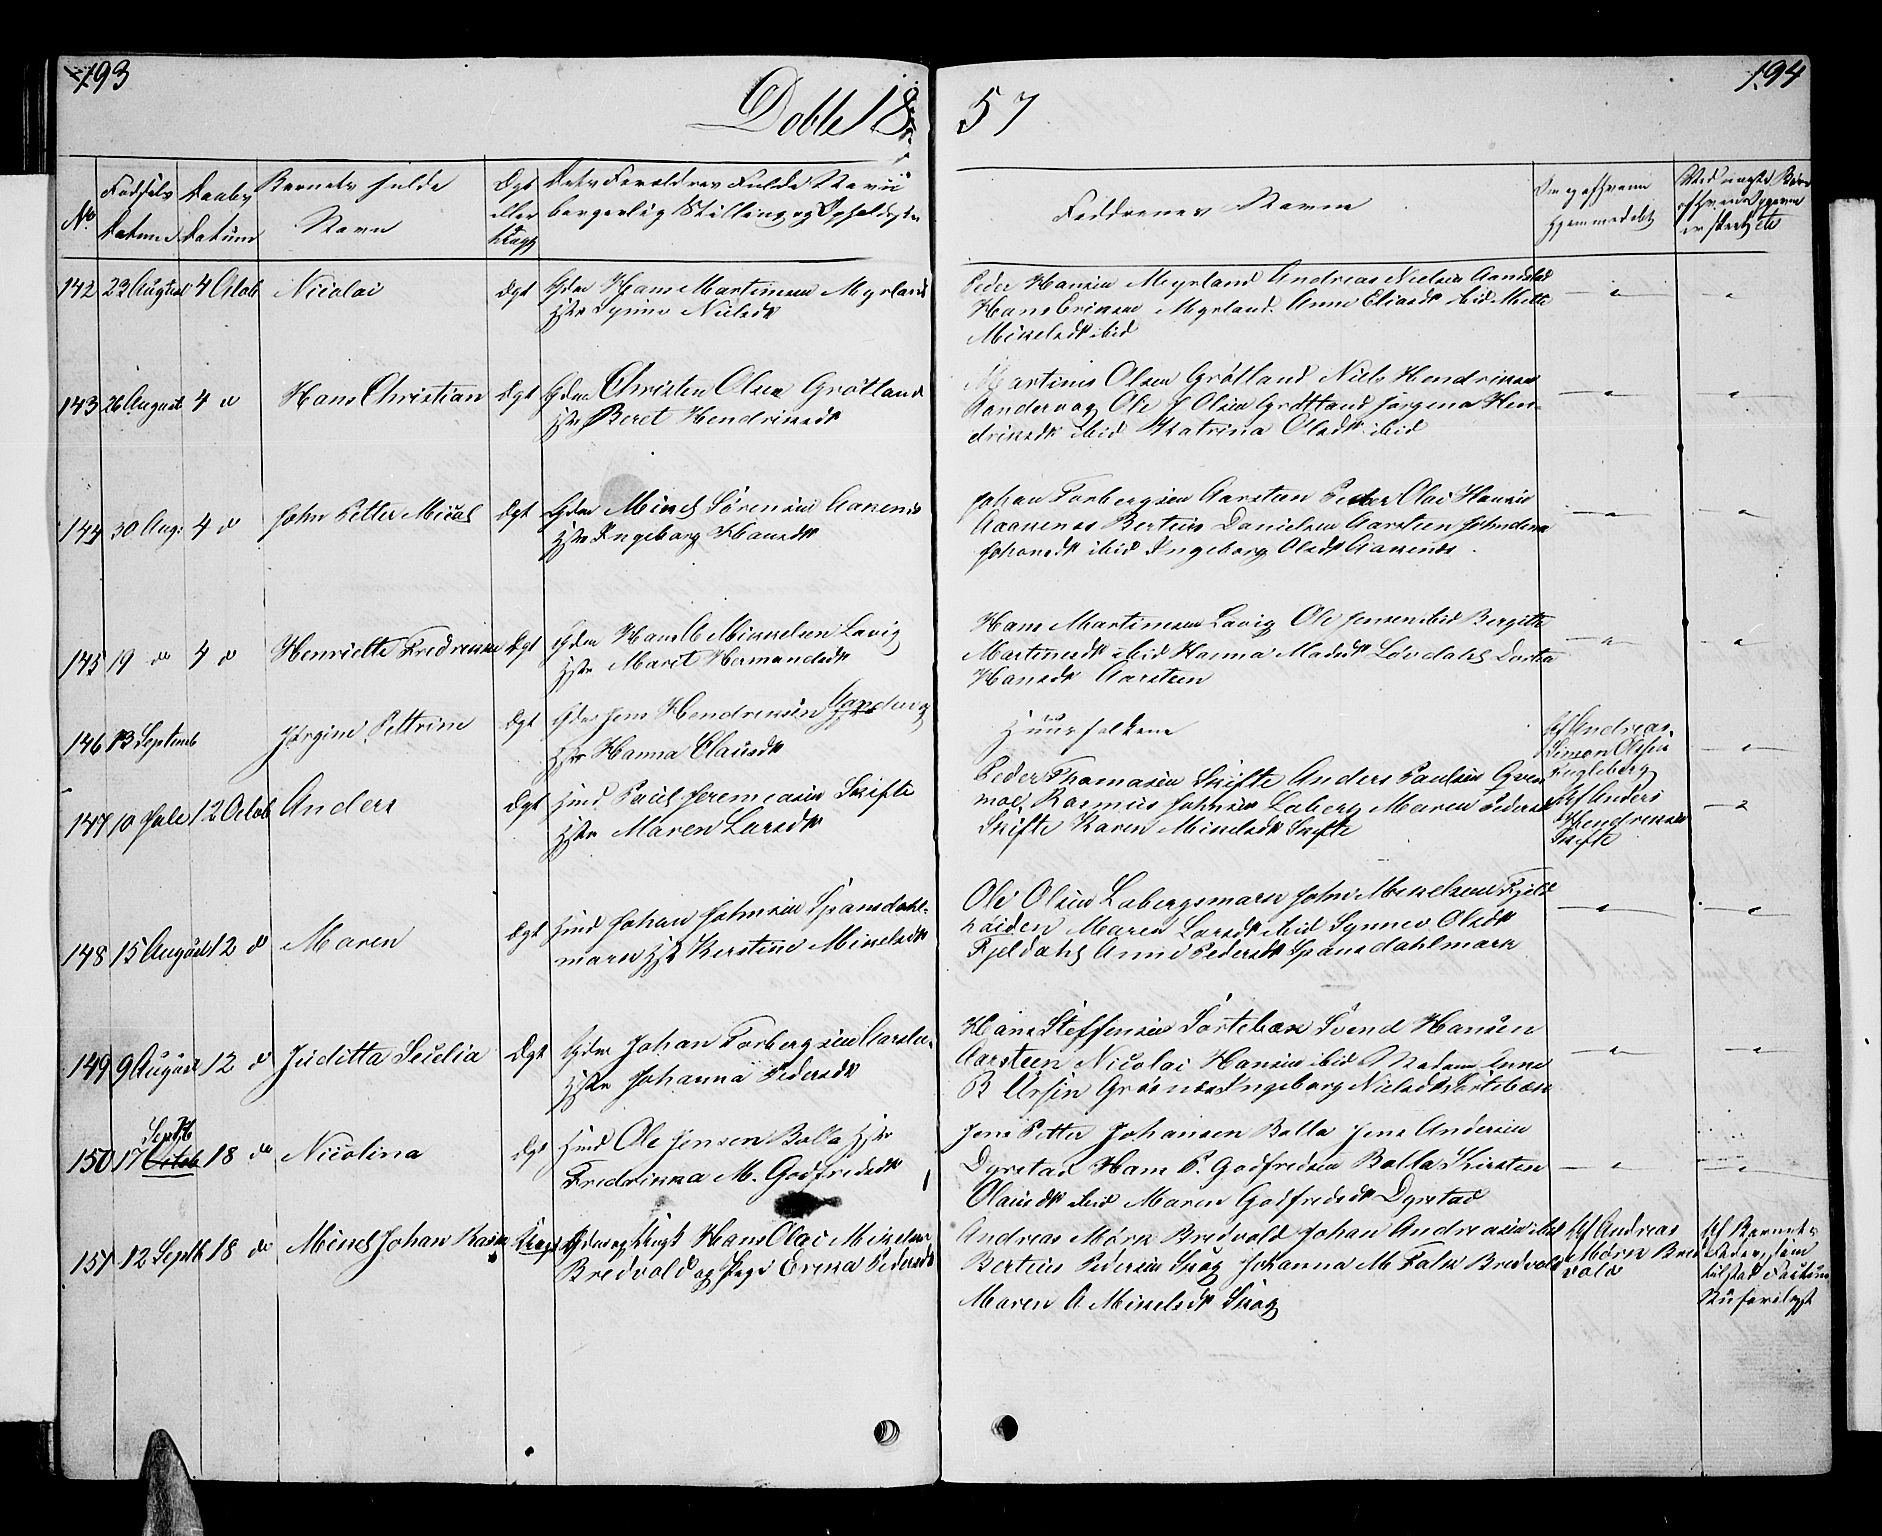 193
194
Döbte 1857
No
Fødsels Datum
Daabs Datum
Barnets fulde Navn
Ægt eller Uægt
Dets Forældres Fulde Navn borgerlig Stilling og Opholdsste
Faddrenes Navne
Om og af hvem hjemmedøbt
142 23 August 4 Octob Nicolai Ægt Gdm Hans Martinsen Myrland
Hstr Synnø Nielsdtr
Peder Hansen Myrland Andreas Nielsen Sandstad
Hans Eriksen Myrland. Anne Eliasdtr ibid Mette
Mikelsdtr ibid
143 26 August 4 do Hans Christian Ægt Gdm Christen Olsen Grøtland
Hstr Beret Hendriksdtr
Martinus Olsen Grøtland Niels Hendriksen
Sandervaag Ole J Olsen Grøtland Jørgena Hen-
driksdtr ibid Katrina Olsdtr ibid
144 30 Aug: 4 do John Petter Mikal Ægt Gdm Mikel Sørensen Aanenes
Hstr Ingeborg Hansdtr
Johan Torbergsen Aarsteen Peder Olai Hansen
Aaneses Berteus Danielsen Aarsteen
Johansdtr ibid Ingeborg Olsdtr Aanenes.
145 19 do 4 do Henriette Fredrikke Ægt Gdm Hans C Mikkelsen Lavig
Hstr Marit Hermandsdtr
Hans Martinsen Lavig Ole Jensen ibid Bergitte
Martinsdtr ibid Hanna Madsdtr Løvdahl Dortea
Hansdtr Aarsteen
146 13 Septemb Jørgine Pettrine Ægt Gdm Jens Hendriksen
Hstr Hanna Clausdtr
Huusfolkene
Af Andreas
Simon Olsen
147 10 Jule 12 Octob Anders Ægt Huusmd Paul Jeremiasen Skifte
Hstr Maren Larsdtr
Peder Thomasen Skifte Anders Paulsen Qven
moe, Rasmus Johnsen Laberg Maren Pedersdtr
Skifte Karen Mikelsdtr Skifte
Af Anders
Hendriksen
Skifte
148 15 August 12 do Maren Ægt Huusmd Johan Johnsen Spansdahl-
mark Hstr Kerstine Mikelsdtr
Ole Olsen Labergsmark John Mikelsen Fjeld
Maren Larsdtr ibid Synnev Olsdtr
Fjeldahl Anne Pedersdtr Spansdahlmark
149 9 August 12 do Juditta Secelia Ægt Gdm Johan Torbergsen Aarsteen
Hstr Johanna Pedersdtr
Hans Steffensen Sørtebæk Svend Hansen
Aarsteen Nicolai Hansen ibid Madam Anne
B Ursin Ingeborg Nielsdtr Sørtebæk
150 17 Septb Octob 18 do Nicolina Ægt Huusmd Ole Jensen Balla Hstr
Fredrikka M. Godfredsdtr
Jens Petter Johansen Balla Jens Andersen
Dyrstad Hans P. Godfredsen Balla Kirsten
Olausdtr ibid Maren Godfredsdtr Dyrstad
151 12 Septb 18 do Mikel Johan Uægt Gdm Hans Olai Mikelsen
Bredvold og Pige Erika Pedersdtr
Andreas Mørk Bredvold Johan Andreasen ibid
Berteus Pedersen Skog Johanna M Falk Bredvold
Maren A Mikelsdtr Skog
Af Andreas
Mørk Bred
vold
Af Barnets
Fader